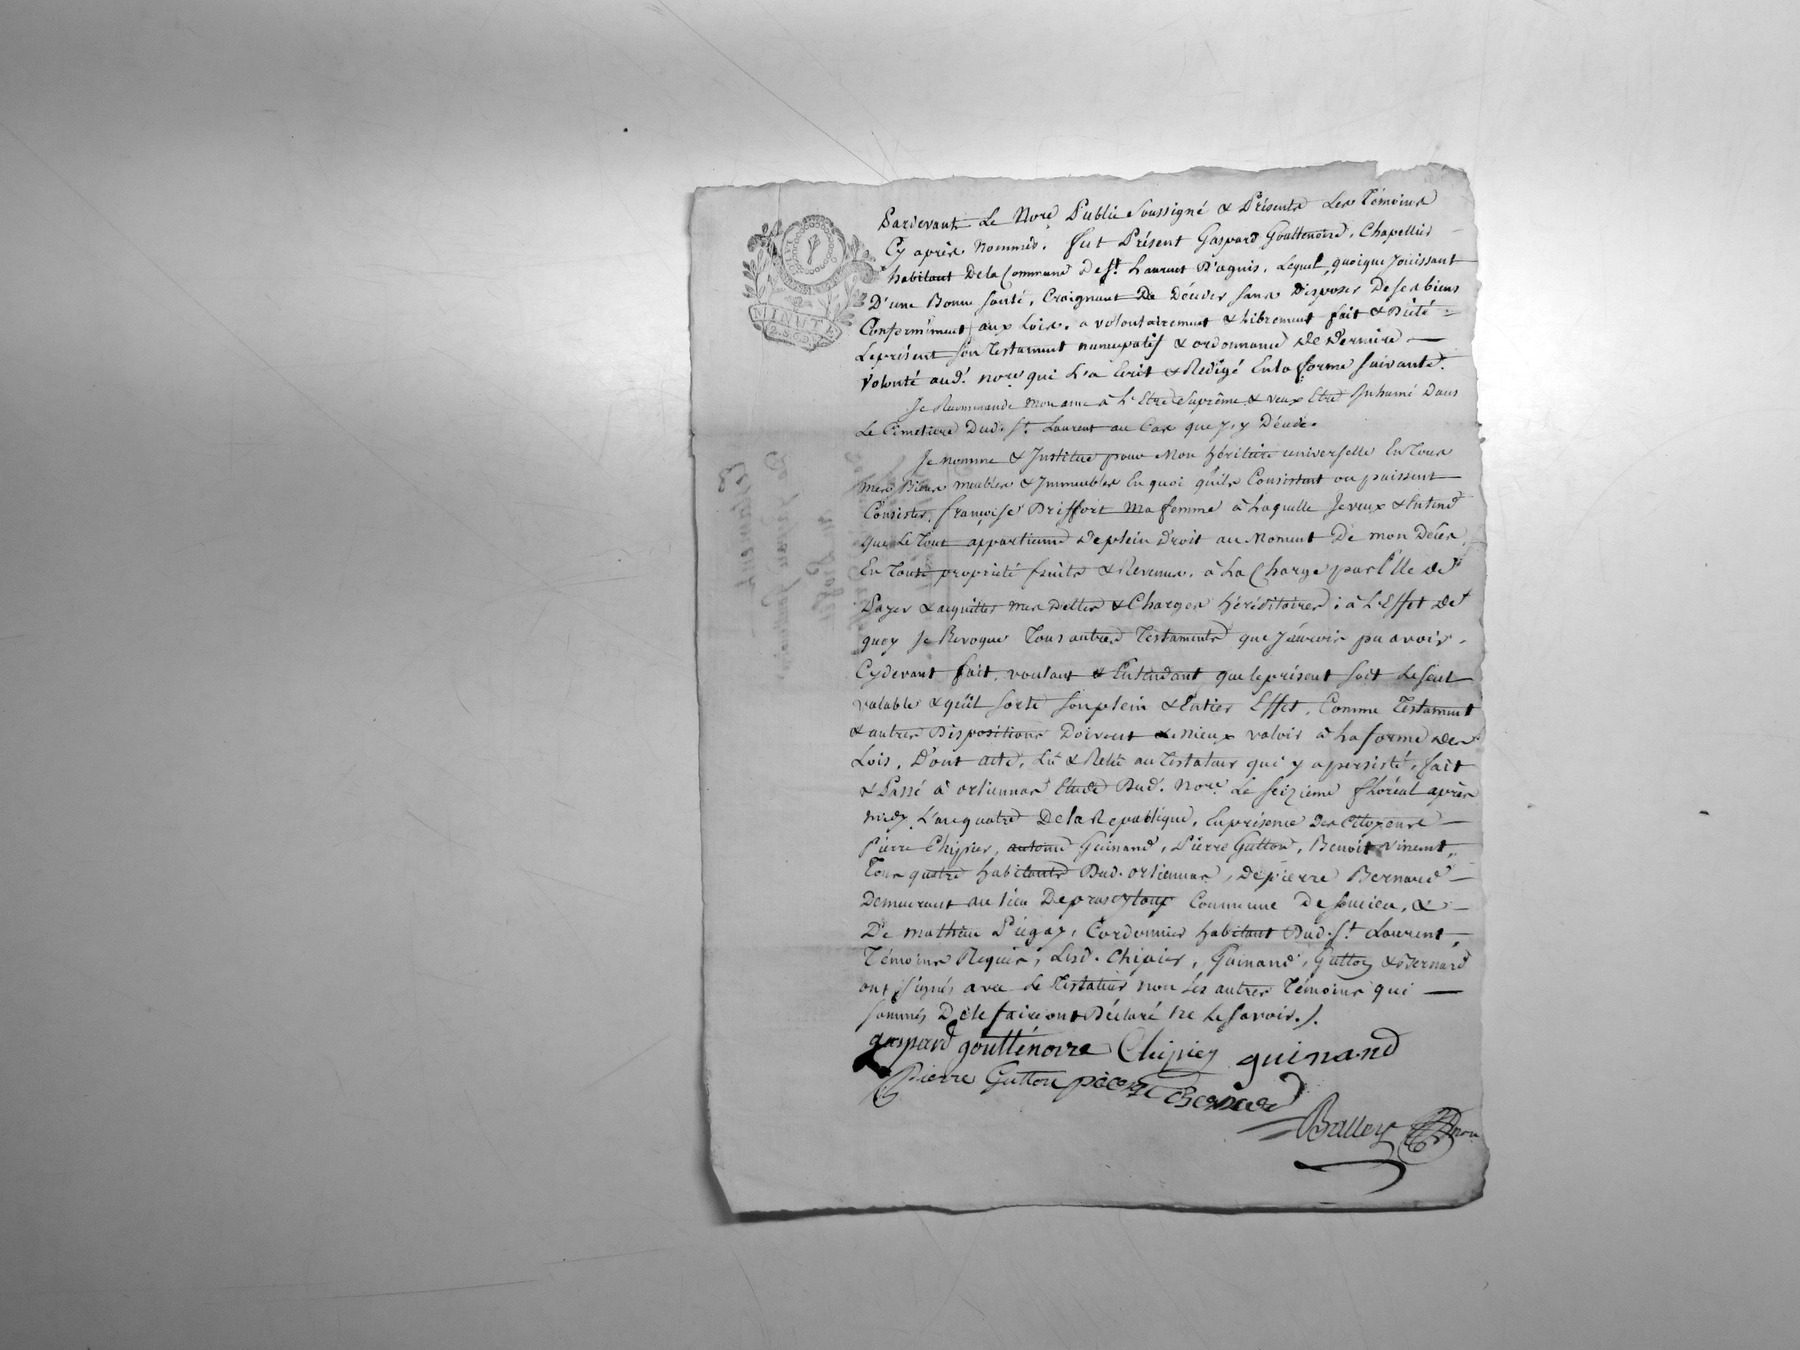 Pardevant Le Nore Public Soussigné & Présents Les Témoins
Cy après Nommés. fut Présent Gaspard Gouttenoire, Chapellier
habitant De la Commune De St. Laurent D'agnis, Lequel, quoique Jouissant
D'une Bonne santé, Craignant De Décéder sans Disposer De ses biens
Conformément aux Loix, a volontairement & Librement fait & Dicté
Le présent son Testament nuncupatif & ordonnance de Derniere
Volonté aud. nore qui L'a Ecrit & Rédigé En la forme suivante.
Je Recommande mon ame à L'Etre Suprême & veux Etre Inhumé Dans
Le Cimetiere Dud. St. Laurent au Cas que J'y Décede.
Je nomme & Institue pour Mon héritiere universelle En Tous
mes Biens meubles & Immeubles En quoi qu'ils Consistent ou puissent
Consister, françoise Briffort Ma femme à Laquelle Je veux & Entend
que Le Tout appartienne De plein Droit au Moment De mon Décès
En Toute propriété fruits & Revenus, à La Charge par Elle de
Payer & acquitter mes Dettes & Charges héréditaires ; à L'Effet de
quoy Je Revoque Tous autres Testaments que J'aurois pu avoir
Cydevant fait, voulant & Entendant que le présent soit Le seul
valable & qu'il sorte son plein & Entier Effet, Comme Testament
& autres Dispositions Doivent & mieux valoir à La forme des
Loix, Dont acte, Lu & Relu au Testateur qui y a persisté, fait
& Passé à orliennas Etude Dud. Nore. Le seizieme floréal après
midy L'an quatre De la Republique, En présence Des Citoyens
Pierre Chipier, antoine Guinand, Pierre Gutton, Benoit vincent,
Tous quatre habitants Dud. orliennas, de pierre Bernard
Demeurant au lieu De Commune De soucieu, &
De mathieu Piegay, Cordonnier habitant Dud. St. Laurent,
Témoins Requis, Lesd. Chipier, Guinand, Gutton & Bernard
ont signés avec Le Testateur non Les autres Témoins qui
sommés De le faire ont Déclaré ne Le savoir./.
gaspard gouttenoire Chipier guinand
Pierre Gutton pierre Bernard
Balley nore
MINUTE